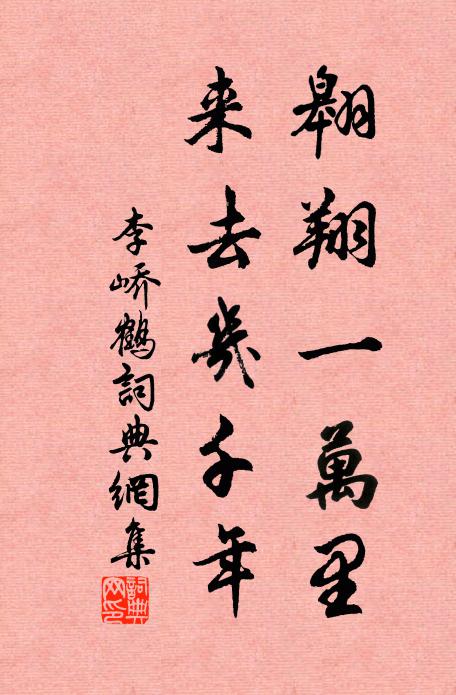 翺翔一萬里
来去幾千年
李嶠鶴詞典網集
詞典網印